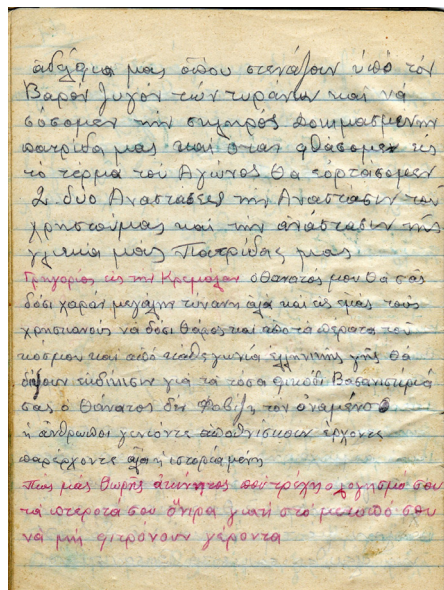 ἀδέλφια μας ὁπου στενάζουν ὑπὸ τὸν
Βαρὸν ζυγὸν τῶν τυράνων καὶ νὰ
σόσομεν τὴν σκληρὸς Δοκιμασμενην
πατρίδα μας καὶ ὅταν φθάσομεν εἰς
τὸ τέρμα του Αγώνος θὰ ἑορτάσομεν
2 δυο Αναστάσεις τὴν Αναστασιν του
χρηστούμας καὶ τὴν ἀνάστασιν τῆς
γλυκιά μας Πατρίδας μας
Γρηγορίος εἰς την Κρεμάλαν ο θανατός μου θα σᾶς
δόσι χαραν μεγάλην τύρανη ἀλα και εἰς εμας τους
χρηστιανούς να δόσι θάρος και απο τα πέρατα του
κόσμου και από καθε γωνία ελληνικης γῆς θὰ
ἐκδίκισιν γιά τα τόσα φρικόδι Βασανιστίριά
σας ο θάνατος δεν φοβίζη τον
ἡ ἀνθρωποι γενιόντε αποθνίσκουν ἔρχοντε
παρέρχοντε αλα ἡ ιστορία μένη
Πως μας θωρῆς ἀκινητος που τρέχη ο λογησμό σου
τα φτεροτα σου ὄνιρα γιατί στο μετωπό σου
νὰ μὴ φιτρόνουν γεροντα